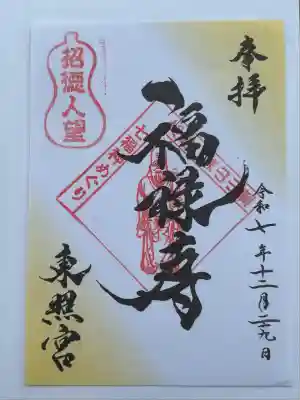 奉拝
令和七年十二月二十九日
福禄寿
七福神めぐり
招德人望
東照宮